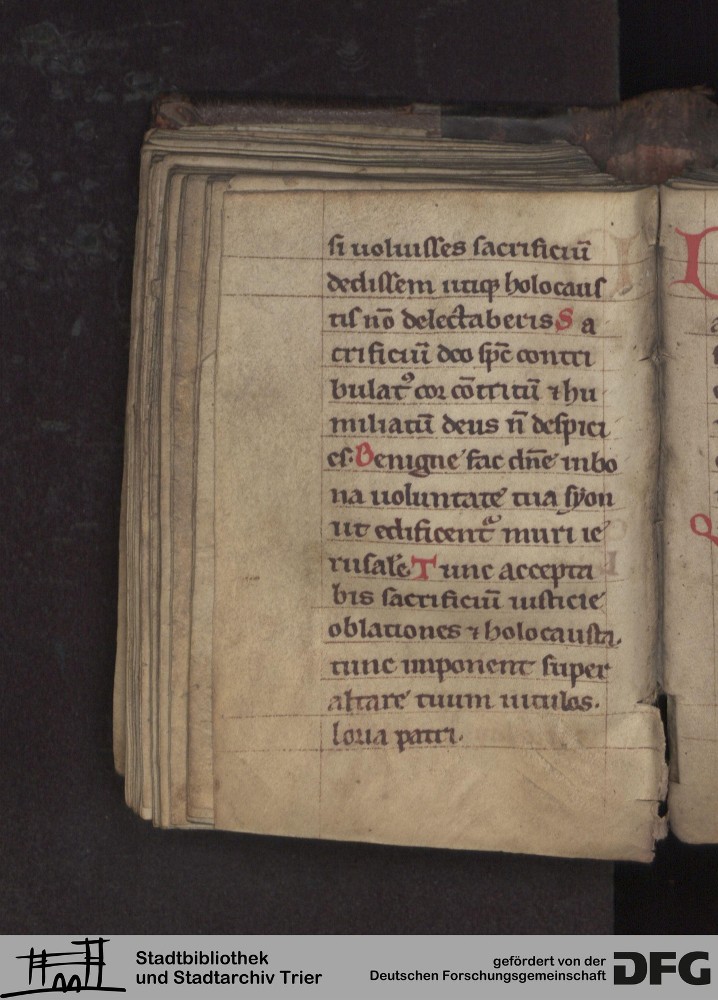 si uoluisses sacrificiū
dedissem utiqꝫ holocaus
tis nō delectaberis S a
crificiū deo sp̄c contri
bulatꝰ cor cōtritū ⁊ hu
miliatū deus n̄ despici
es. Benigne fac dn̄e inbo
na uoluntate tua syon
ut edificentᷓ muri ie
rusalē Tunc accepta
bis sacrificiū iusticie
oblationes ⁊ holocausta.
tunc imponent super
altare tuum uitulos.
loria patri.
Stadtbibliothek
und Stadtarchiv Trier
gefördert von der
Deutschen Forschungsgemeinschaft
DFG